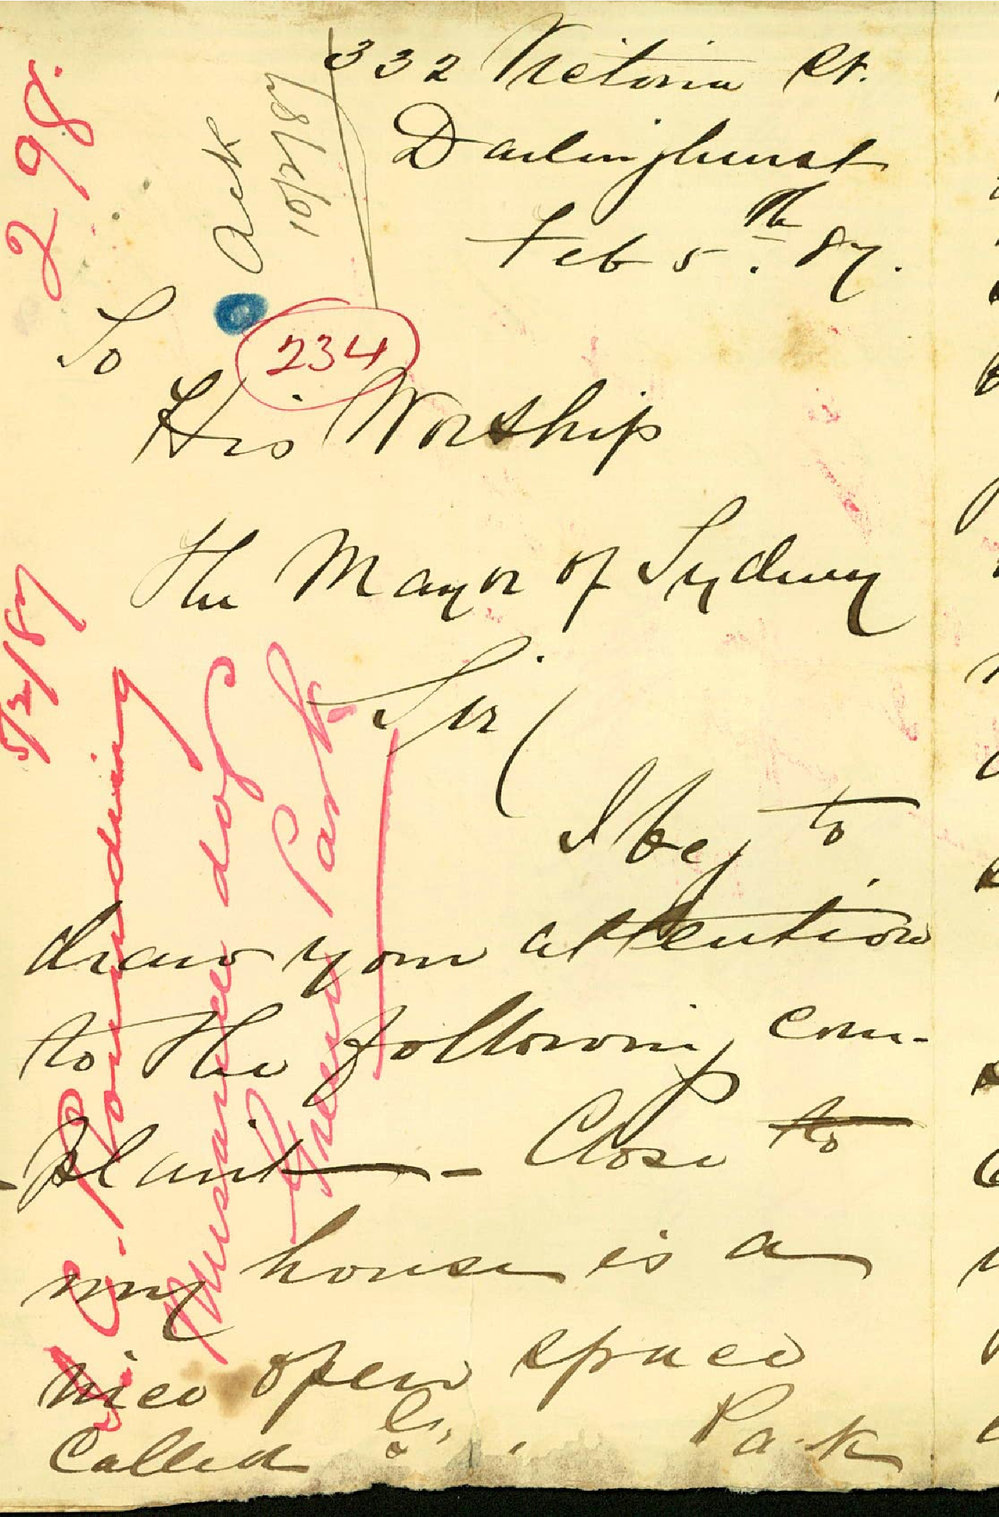 332 Victoria St.
Darlinghurst
Feb 5th. 87.
298.
Ack
10/2/87
234
To
His Worship
the Mayor of Sydney
Sir
I beg to
draw your attention
to the following com-
-plaint - Close to
my house is a
nice open space
called Park
5/2/87
Pounding
Nuisance dogs
Green Park